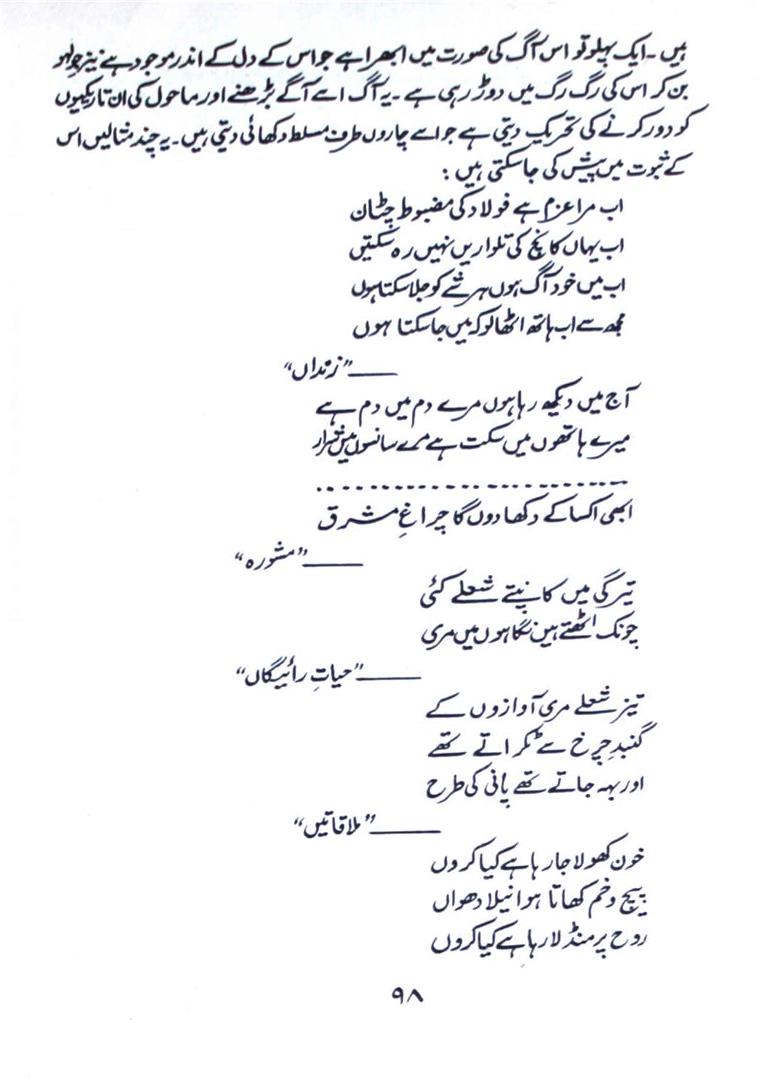 ہیں ۔ ایک پہلو تو اس آگ کی صورت میں ابھرا ہے جو اس کے دل کے اندر موجود ہے نیز جو لہو
بن کر اس کی رگ رگ میں دوڑ رہی ہے ۔ یہ آگ اسے آگے بڑھنے اور ماحول کی ان تاریکیوں
کو دور کرنے کی تحریک دیتی ہے جو اسے چاروں طرف مسلط دکھائی دیتی ہیں ۔ یہ چند مثالیں اس
کے ثبوت میں پیش کی جا سکتی ہیں :
اب مرا عزم ہے فولاد کی مضبوط چٹان
اب یہاں کانچ کی تلواریں نہیں رہ سکتیں
اب میں خود آگ ہوں ہر شے کو جلا سکتا ہوں
مجھ سے اب ہاتھ اٹھا لو کہ میں جا سکتا ہوں
ــــــ "زنداں"
آج میں دیکھ رہا ہوں مرے دم میں دم ہے
میرے ہاتھوں میں سکت ہے مرے سانسوں میں شرار
۔۔۔۔۔۔۔۔۔۔۔۔۔۔۔۔۔۔۔۔۔۔۔۔
ابھی اکسا کے دکھا دوں گا چراغِ مشرق
ــــــ "مشورہ"
تیرگی میں کانپتے شعلے کئی
چونک اٹھتے ہیں نگاہوں میں مری
ــــــ "حیاتِ رائیگاں"
تیز شعلے مری آوازوں کے
گنبدِ چرخ سے ٹکراتے تھے
اور بہہ جاتے تھے پانی کی طرح
ــــــ "ملاقاتیں"
خون کھولا جا رہا ہے کیا کروں
پیچ و خم کھاتا ہوا نیلا دھواں
روح پر منڈلا رہا ہے کیا کروں
۹۸